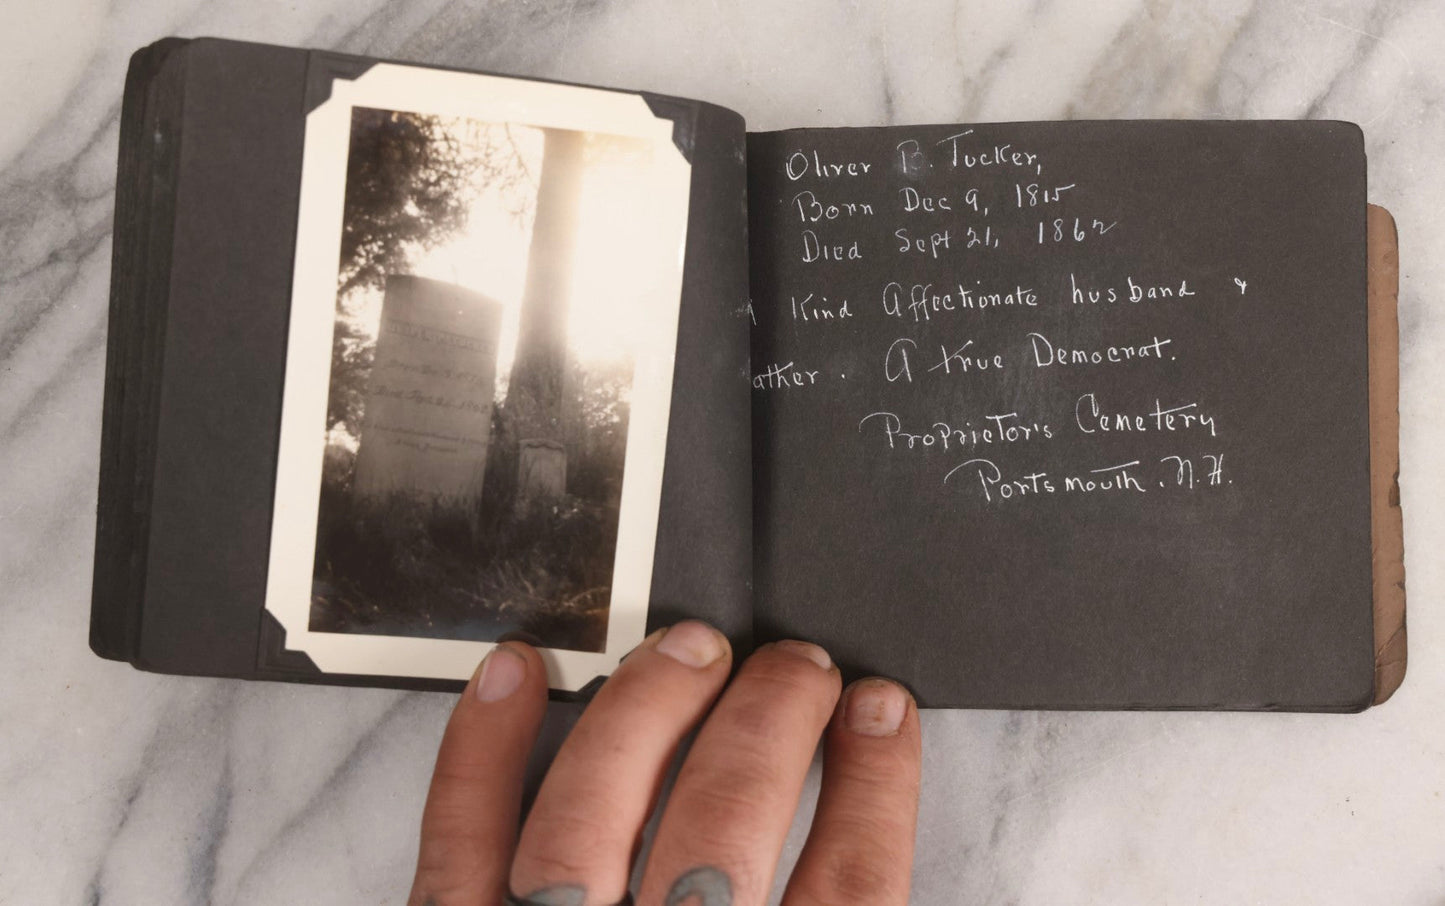 Oliver B. Tucker,
Born Dec 9, 1815
Died Sept 21, 1862
A Kind Affectionate husband &
ather. A true Democrat.
Proprietor's Cemetery
Portsmouth. N.H.